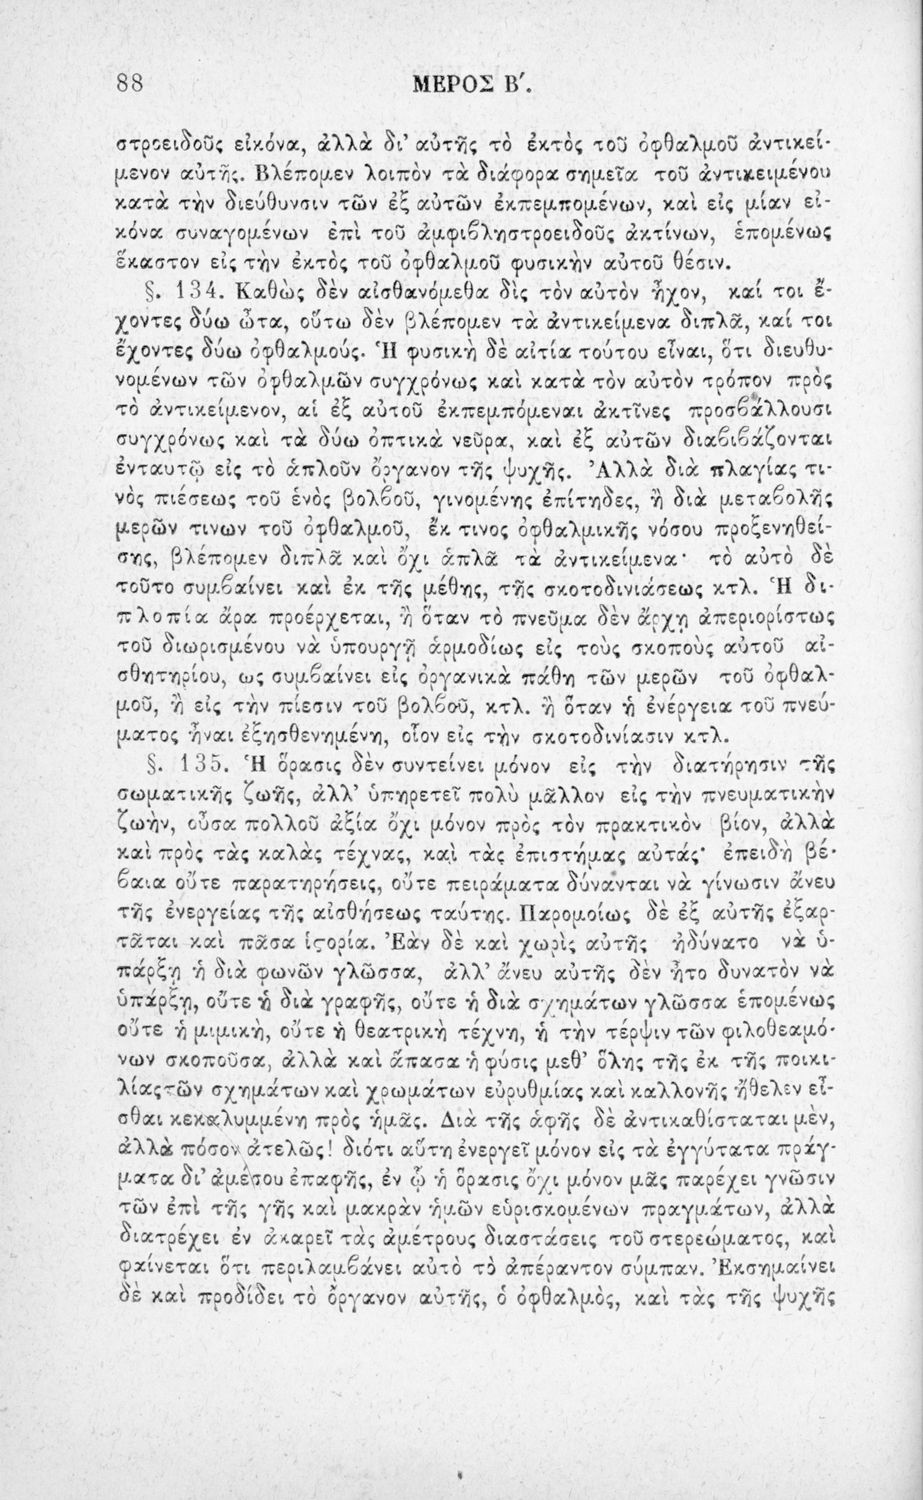 88 ΜΕΡΟΣ Β΄.
στροειδοῦς εἰκόνα, ἀλλὰ δι' αὐτῆς τὸ ἐκτὸς τοῦ ὀφθαλμοῦ ἀντικεί-
μενον αὐτῆς. Βλέπομεν λοιπὸν τὰ διάφορα σημεῖα τοῦ ἀντικειμένου
κατὰ τὴν διεύθυνσιν τῶν ἐξ αὐτῶν ἐκπεμπομένων, καὶ εἰς μίαν εἰ-
κόνα συναγομένων ἐπὶ τοῦ ἀμφιβληστροειδοῦς ἀκτίνων, ἑπομένως
ἕκαστον εἰς τὴν ἐκτὸς τοῦ ὀφθαλμοῦ φυσικὴν αὐτοῦ θέσιν.
§. 134. Καθὼς δὲν αἰσθανόμεθα δὶς τὸν αὐτὸν ἦχον, καί τοι ἔ-
χοντες δύω ὦτα, οὕτω δὲν βλέπομεν τὰ ἀντικείμενα διπλᾶ, καί τοι
ἔχοντες δύω ὀφθαλμούς. Ἡ φυσικὴ δὲ αἰτία τούτου εἶναι, ὅτι διευθυ-
νομένων τῶν ὀφθαλμῶν συγχρόνως καὶ κατὰ τὸν αὐτὸν τρόπον πρὸς
τὸ ἀντικείμενον, αἱ ἐξ αὐτοῦ ἐκπεμπόμεναι ἀκτῖνες προσβάλλουσι
συγχρόνως καὶ τὰ δύω ὀπτικὰ νεῦρα, καὶ ἐξ αὐτῶν διαβιβάζονται
ἐνταυτῷ εἰς τὸ ἁπλοῦν ὄργανον τῆς ψυχῆς. Ἀλλὰ διὰ πλαγίας τι-
νὸς πιέσεως τοῦ ἑνὸς βολβοῦ, γινομένης ἐπίτηδες, ἢ διὰ μεταβολῆς
μερῶν τινων τοῦ ὀφθαλμοῦ, ἔκ τινος ὀφθαλμικῆς νόσου προξενηθεί-
σης, βλέπομεν διπλᾶ καὶ ὄχι ἁπλᾶ τὰ ἀντικείμενα· τὸ αὐτὸ δὲ
τοῦτο συμβαίνει καὶ ἐκ τῆς μέθης, τῆς σκοτοδινιάσεως κτλ. Ἡ δι-
πλοπία ἄρα προέρχεται, ἢ ὅταν τὸ πνεῦμα δὲν ἄρχῃ ἀπεριορίστως
τοῦ διωρισμένου νὰ ὑπουργῇ ἁρμοδίως εἰς τοὺς σκοποὺς αὐτοῦ αἰ-
σθητηρίου, ως συμβαίνει εἰς ὀργανικὰ πάθη τῶν μερῶν τοῦ ὀφθαλ-
μοῦ, ἢ εἰς τὴν πίεσιν τοῦ βολβοῦ, κτλ. ἢ ὅταν ἡ ἐνέργεια τοῦ πνεύ-
ματος ἦναι ἐξησθενημένη, οἷον εἰς τὴν σκοτοδινίασιν κτλ.
§. 135. Ἡ ὅρασις δὲν συντείνει μόνον εἰς τὴν διατήρησιν τῆς
σωματικῆς ζωῆς, ἀλλ' ὑπηρετεῖ πολὺ μᾶλλον εἰς τὴν πνευματικὴν
ζωὴν, οὖσα πολλοῦ ἀξία ὄχι μόνον πρὸς τὸν πρακτικὸν βίον, ἀλλὰ
καὶ πρὸς τὰς καλὰς τέχνας, καὶ τὰς ἐπιστήμας αὐτάς· ἐπειδὴ βέ-
βαια οὔτε παρατηρήσεις, οὔτε πειράματα δύνανται νὰ γίνωσιν ἄνευ
τῆς ἐνεργείας τῆς αἰσθήσεως ταύτης. Παρομοίως δὲ ἐξ αὐτῆς ἐξαρ-
τᾶται καὶ πᾶσα ἱϛορία. Ἐὰν δὲ καὶ χωρὶς αὐτῆς ἠδύνατο νὰ ὑ-
πάρξῃ ἡ διὰ φωνῶν γλῶσσα, ἀλλ' ἄνευ αὐτῆς δὲν ἦτο δυνατὸν νὰ
ὑπάρξῃ, οὔτε ἡ διὰ γραφῆς, οὔτε ἡ διὰ σχημάτων γλῶσσα ἑπομένως
οὔτε ἡ μιμικὴ, οὔτε ἡ θεατρικὴ τέχνη, ἡ τὴν τέρψιν τῶν φιλοθεαμό-
νων σκοποῦσα, ἀλλὰ καὶ ἅπασα ἡ φύσις μεθ' ὅλης τῆς ἐκ τῆς ποικι-
λίας τῶν σχημάτων καὶ χρωμάτων εὐρυθμίας καὶ καλλονῆς ἤθελεν εἶ-
σθαι κεκαλυμμένη πρὸς ἡμᾶς. Διὰ τῆς ἁφῆς δὲ ἀντικαθίσταται μὲν,
ἀλλὰ πόσον ἀτελῶς! διότι αὕτη ἐνεργεῖ μόνον εἰς τὰ ἐγγύτατα πράγ-
ματα δι' ἀμέσου ἐπαφῆς, ἐν ᾧ ἡ ὅρασις ὄχι μόνον μᾶς παρέχει γνῶσιν
τῶν ἐπὶ τῆς γῆς καὶ μακρὰν ἡμῶν εὑρισκομένων πραγμάτων, ἀλλὰ
διατρέχει ἐν ἀκαρεῖ τὰς ἀμέτρους διαστάσεις τοῦ στερεώματος, καὶ
φαίνεται ὅτι περιλαμβάνει αὐτὸ τὸ ἀπέραντον σύμπαν. Ἐκσημαίνει
δὲ καὶ προδίδει τὸ ὄργανον αὐτῆς, ὁ ὀφθαλμὸς, καὶ τὰς τῆς ψυχῆς